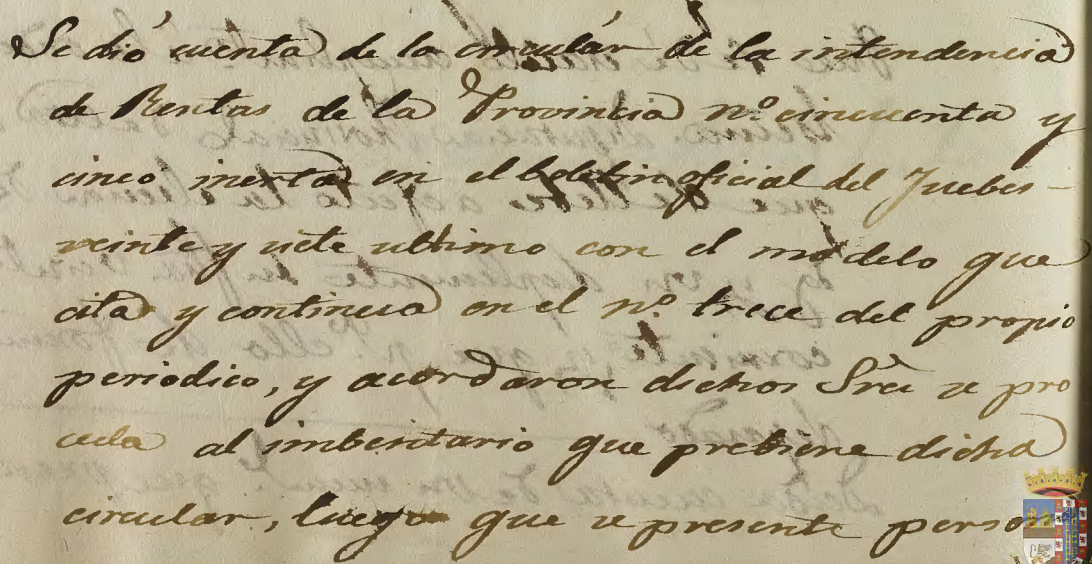 Se dió cuenta de la circulár de la intendencia
de Rentas de la Provincia nº. cincuenta y
cinco inserta en el boletin oficial del Juebes
veinte y siete ultimo con el modelo que
cita y continua en el nº. trece del propio
periodico, y acordaron dichos Sres se pro
ceda al imbentario que prebiene dicha
circular, luego que se presente perso